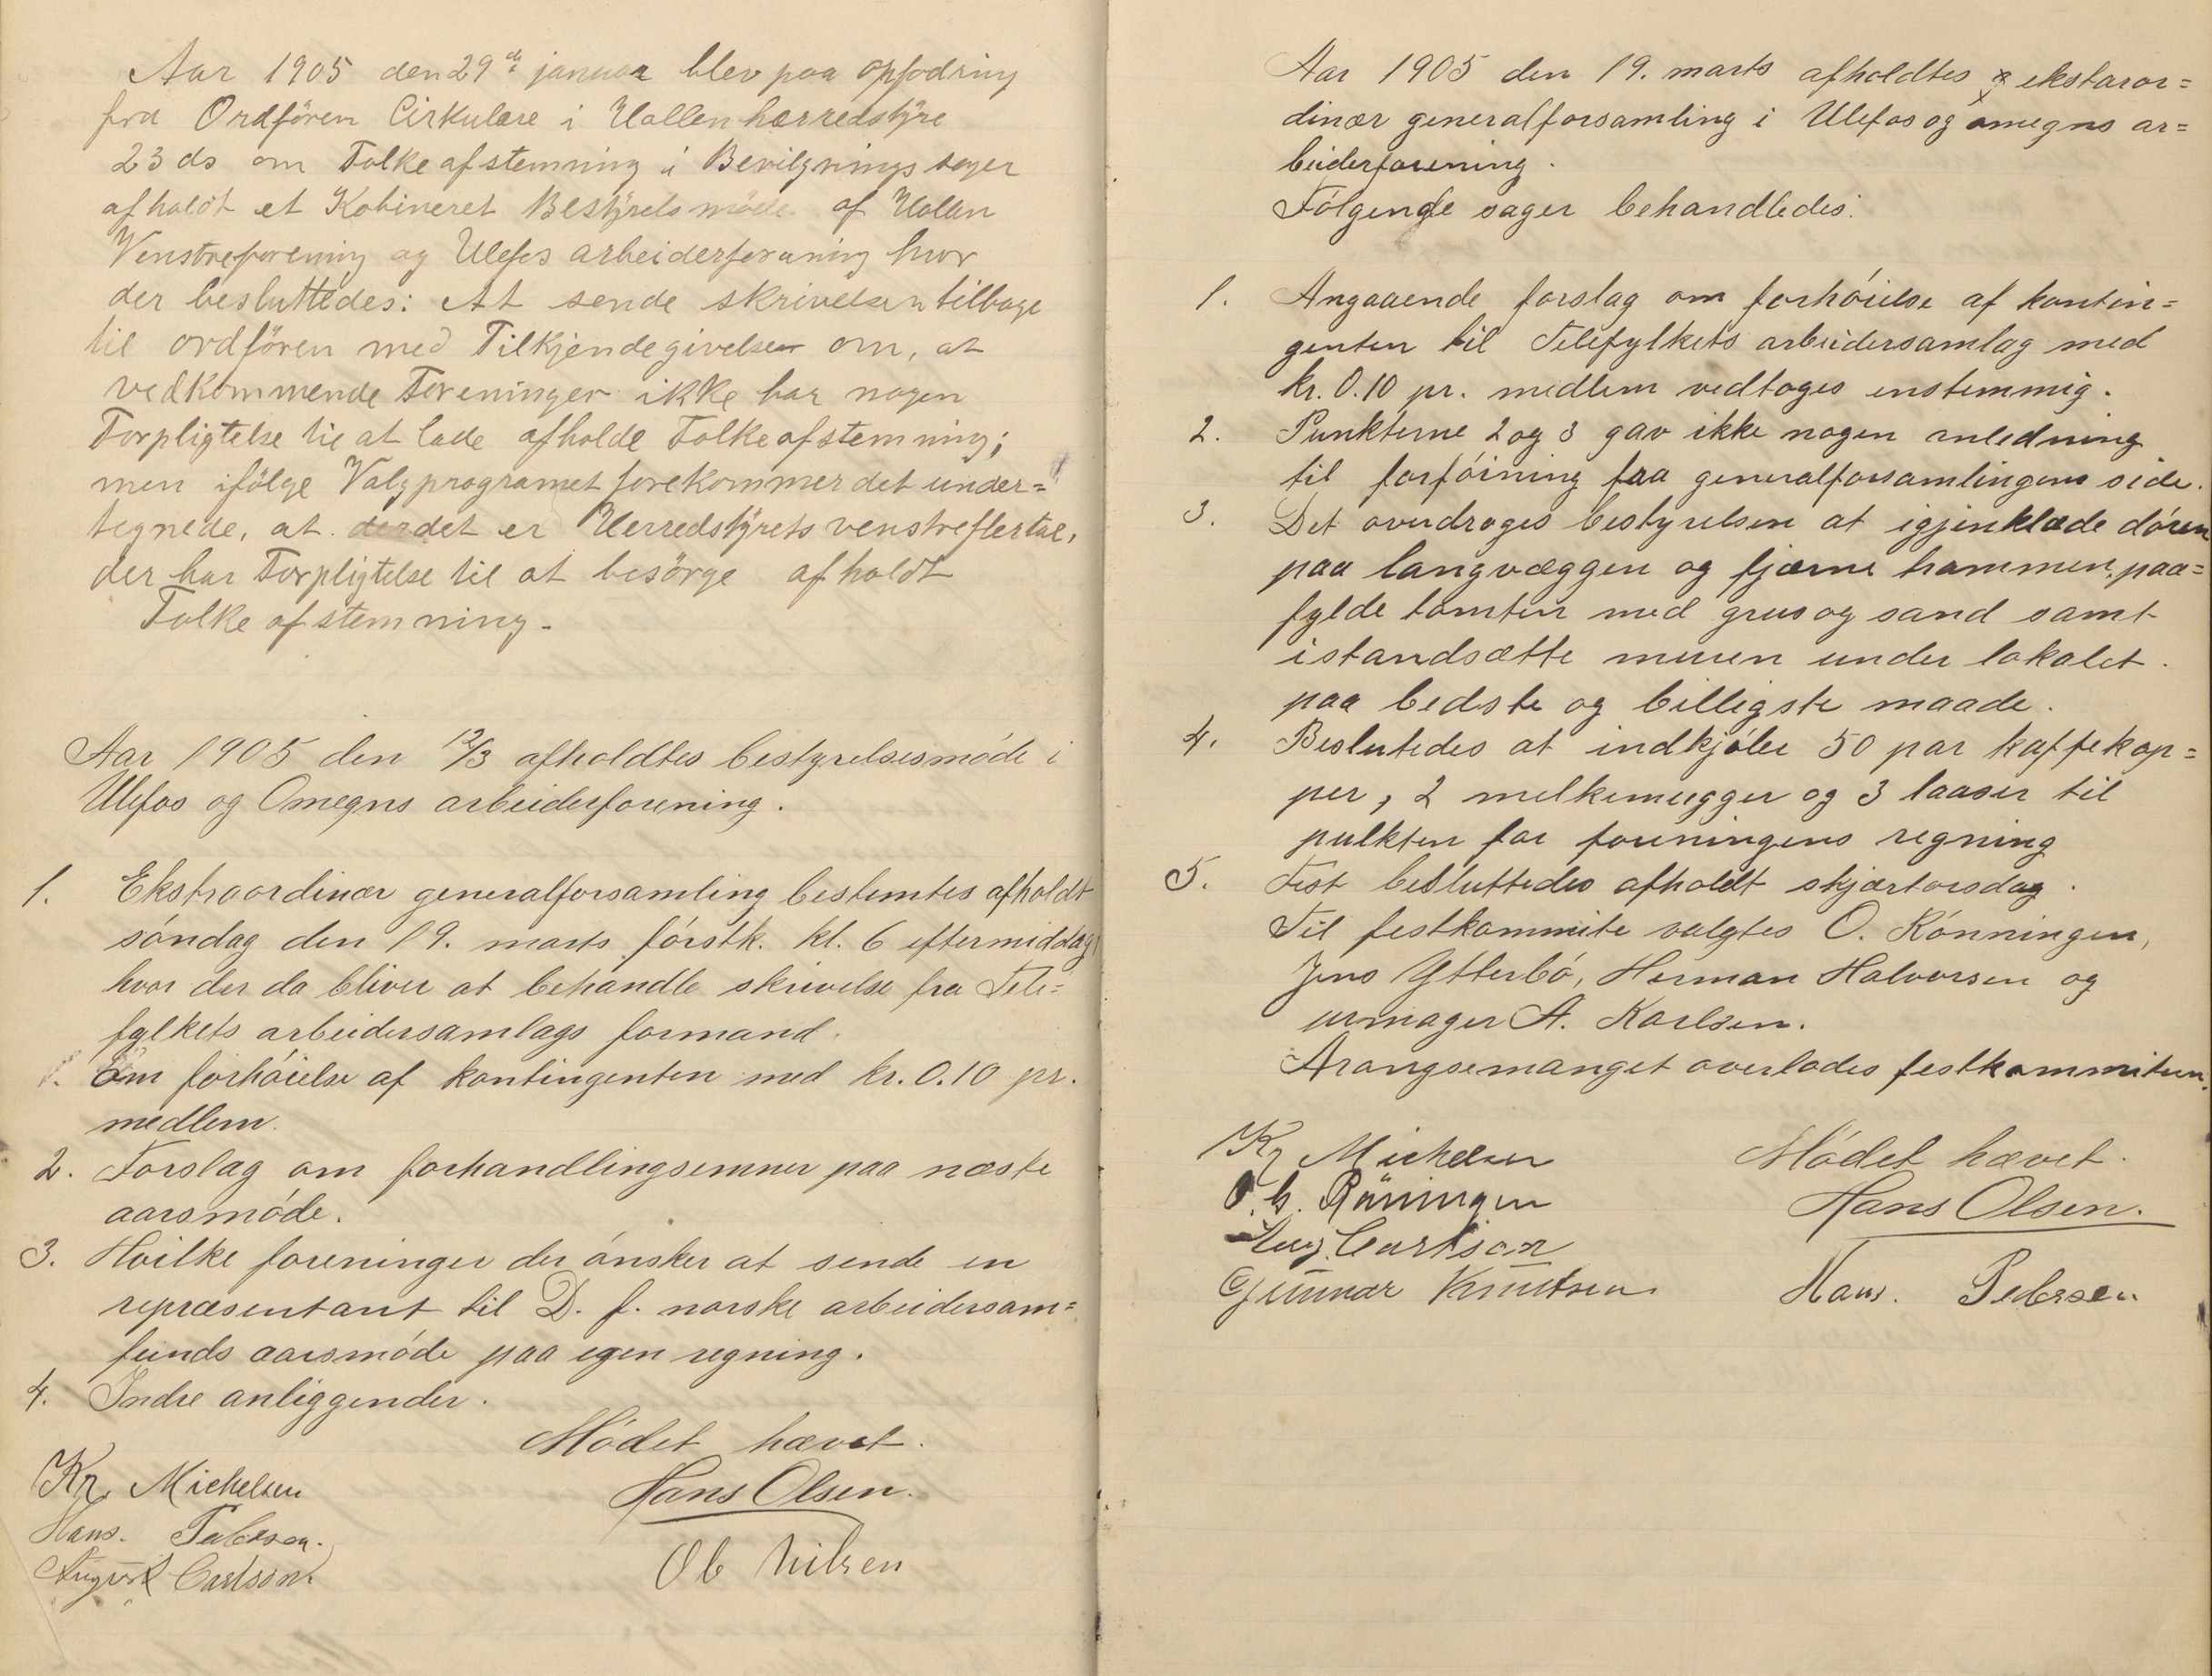 Aar 1905 den 29de januar blev paa opfodring
fra Ordfören Cirkulære i Hollen herredstÿre
23 ds om Folkeafstemning i Bevilgnings sager
afholdt et Kobineret Bestÿrelsmöde af Hollen
Venstreforening og Ulefos arbeiderforening hvor
der besluttedes: At sende skrivelsen tilbage
til ordfören med Tilkjendegivelse om, at
vedkommende Foreninger ikke har nogen
Forpligtelse til at lade afholde Folkeafstemning;
men ifölge Valgprogramet forekommer det under=
tegnede, at det er Herredstÿrets venstreflertal,
der har Forpligtelse til at besörge afholdt
Folkeafstemning.
Aar 1905 den 12/3 afholdtes bestyrelsesmóde i
Ulefos og Omegns arbeiderforening.
1. Ekstraordinær generalforsamling bestemtes afholdt
sóndag den 19. marts fórstk. kl. 6 eftermiddag
hvor der da bliver at behandle skrivelse fra Tele=
fylkets arbeidersamlags formand.
1. Om forhóielse af kontingenten med kr. 0.10 pr.
medlem.
2. Forslag om forhandlingsemner paa næste
aarsmóde.
3. Hvilke foreninger der ónsker at sende en
repræsentant til D. f. norske arbeidersam=
funds aarsmóde paa egen regning.
4. Indre anliggender.
Módet hævet.
Kr. Michelsen
Hans Olsen.
Hans. Pedersen.
Ole Nilsen
August Carlsson
Aar 1905 den 19. marts afholdtes ekstaror=
dinær generalforsamling i Ulefos og omegns ar=
beiderforening.
Fólgende sager behandledes:
1. Angaaende forslag om forhóielse af kontin=
genten til Telefylkets arbeidersamlag med
kr. 0.10 pr. medlem vedtoges enstemmig.
2. Punkterne 2 og 3 gav ikke nogen anledning
til forfóining fra generalforsamlingens side.
3. Det overdroges bestyrelsen at igjenklæde dóren
paa langvæggen og fjærne hammen, paa=
fylde tomten med grus og sand samt
istandsætte muren under lokalet
paa bedste og billigste maade.
4. Beslutedes at indkjóbe 50 par kaffekop=
per, 2 melkemugger og 3 laaser til
pulkten for foreningens regning
5. Fest besluttedes afholdt skjærtorsdag.
Til festkommite valgtes O. Rónningen,
Jens Ytterbó, Herman Halvorsen og
urmager A. Karlsen.
Arangsemanget overlodes festkommiteen.
Kr Michelsen
Módet hævet.
O. G. Röningen
Hans Olsen.
Aug. Carlsson
Gunnar Knutsen.
Hans. Pedersen